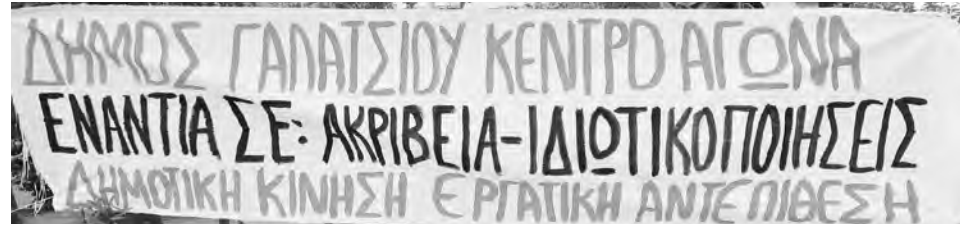 ΔΗΜΟΣ ΓΑΛΑΤΣΙΟΥ ΚΕΝΤΡΟ ΑΓΩΝΑ
ΕΝΑΝΤΙΑ ΣΕ: ΑΚΡΙΒΕΙΑ-ΙΔΙΩΤΙΚΟΠΟΙΗΣΕΙΣ
ΔΗΜΟΤΙΚΗ ΚΙΝΗΣΗ ΕΡΓΑΤΙΚΗ ΑΝΤΕΠΙΘΕΣΗ